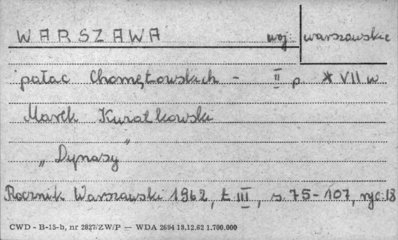 WARSZAWA woj: warszawskie
pałac Chomętowskich - II p XVII w
Marek Kwiatkowski
"Dynasy"
Rocznik Warszawski 1962, t III, s 75-107, ryc: 18
CWD - B-15-b, nr 2827/ZW/P — WDA 2694 18.12.62 1.700.000